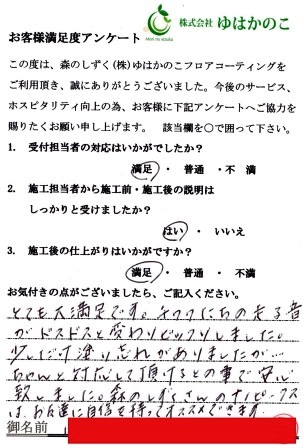 株式会社 ゆはかのこ
Mori no shizuku
お客様満足度アンケート
この度は、森のしずく(株)ゆはかのこフロアコーティングを
ご利用頂き、誠にありがとうございました。今後のサービス、
ホスピタリティ向上の為、お客様に下記アンケートへご協力を
賜りたくお願い申し上げます。 該当欄を○で囲って下さい。
1. 受付担当者の対応はいかがでしたか?
満足 ・ 普通 ・不 満
2. 施工担当者から施工前・施工後の説明は
しっかりと受けましたか?
はい ・ いいえ
3. 施工後の仕上がりはいかがですか?
満足 ・ 普通 ・ 不満
お気付きの点がございましたら、ご記入ください。
とても大満足です。たちの走る音
がドスドスと変わりビックリしました。
少しだけ塗り忘れがありましたが…
ちゃんと対応して頂けるとの事で安心
致しました。森のしずくさんの
は、お友達に自信を持ってオススメできます
御名前